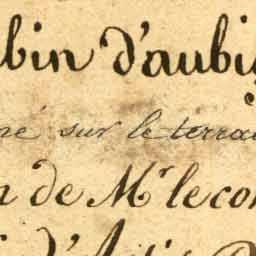 bin d'aubi
né sur le terrai
n de Mr le con